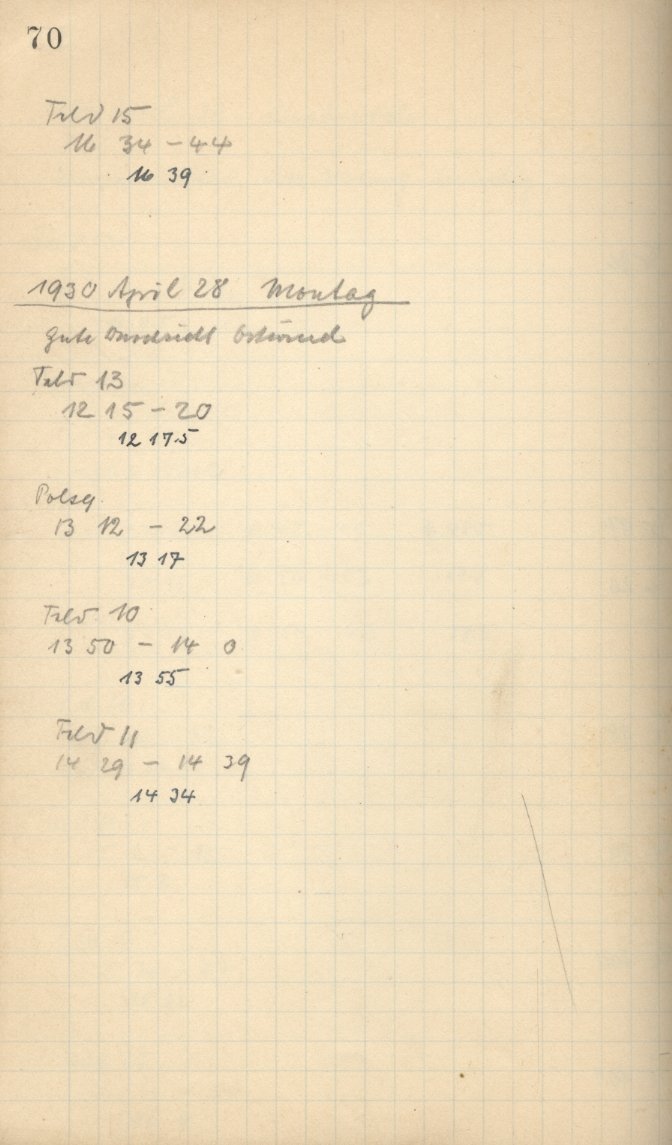 70
Feld 15
16 34 – 44
16 39
1930 April 28 Montag
Gute Durchsicht Ostwind
Feld 13
12 15 – 20
12 17.5
Polsq.
13 12 – 22
13 17
Feld 10
13 50 – 14 0
13 55
Feld 11
14 29 – 14 39
14 34